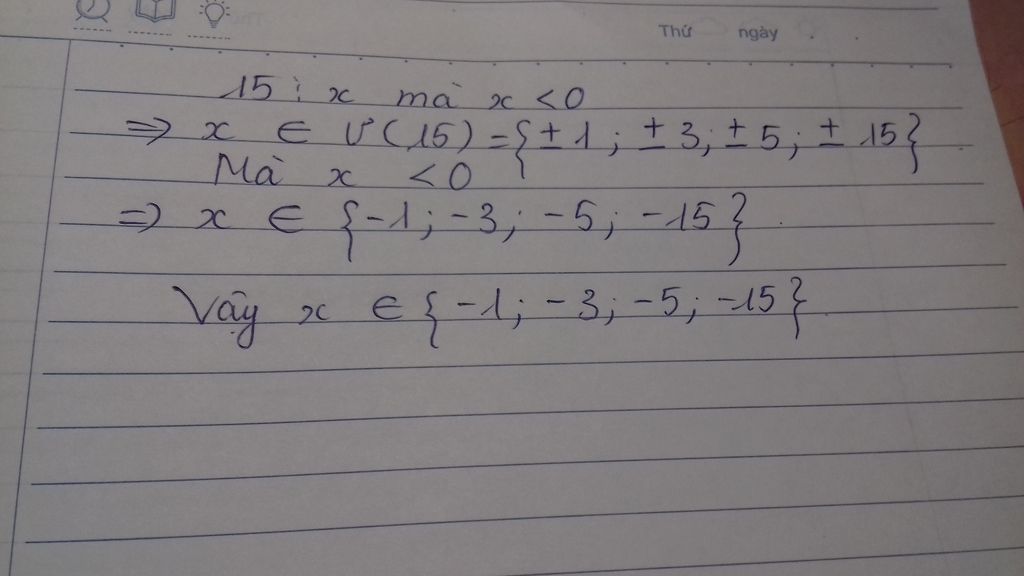 Thứ ngày
15 ⋮ x mà x < 0
=> x ∈ Ư(15) = {±1; ±3; ±5; ±15}
Mà x < 0
=> x ∈ {-1; -3; -5; -15}
Vậy x ∈ {-1; -3; -5; -15}